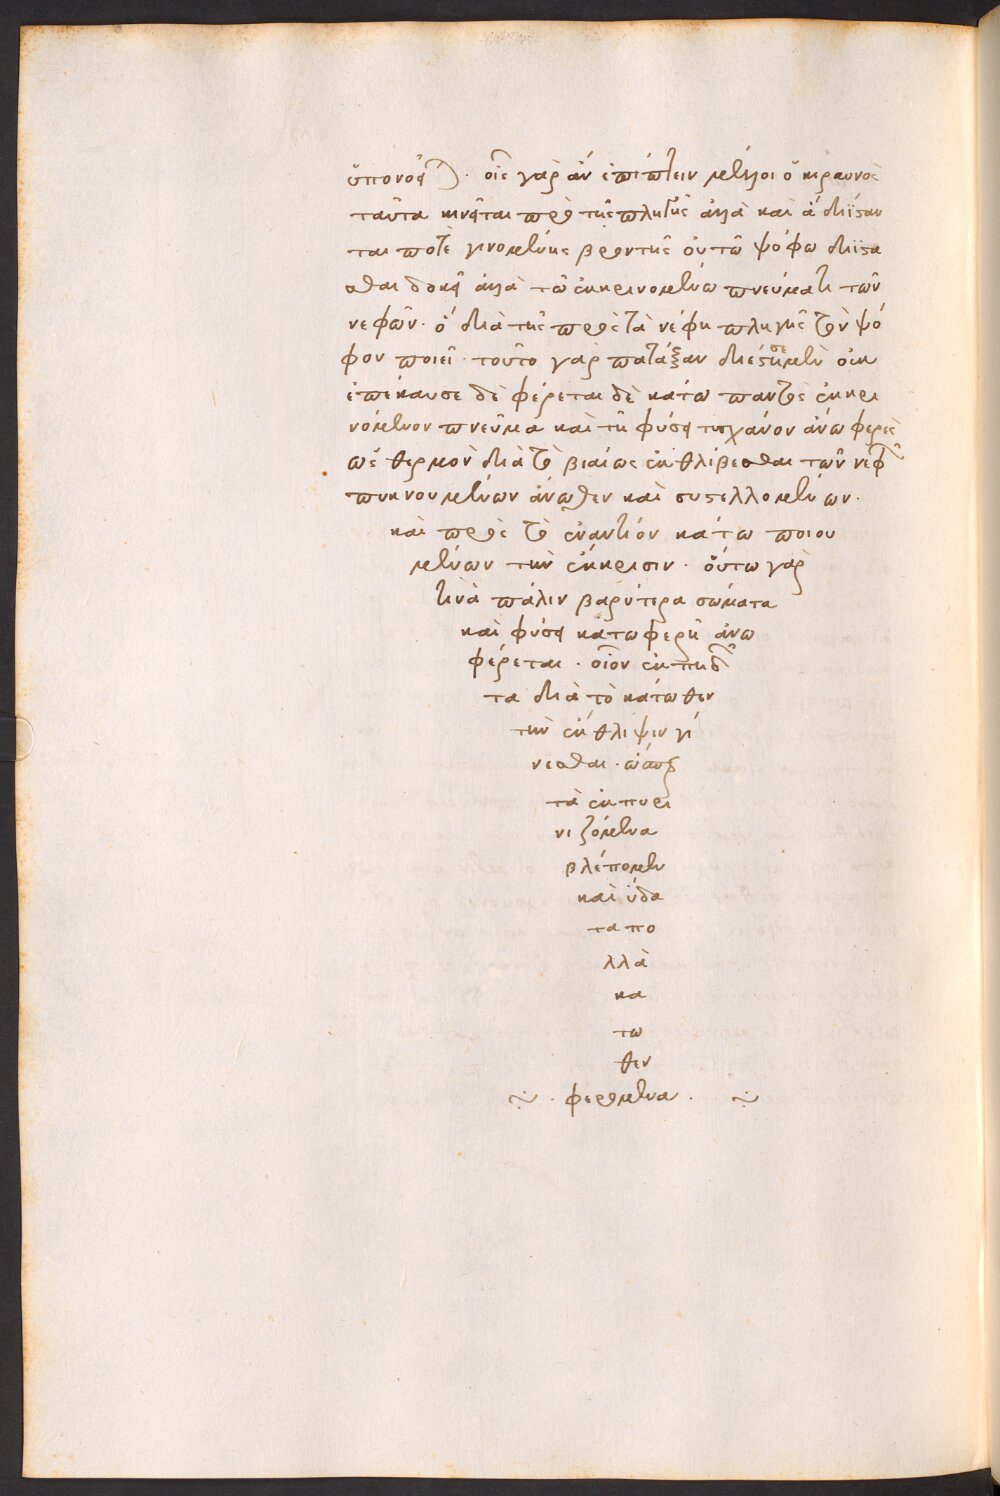 ὑπονοεῖν. οἷς γὰρ ἂν ἐπιπίπτειν μέλλοι ὁ κεραυνὸς
ταῦτα κινεῖται πρὸ τῆς πληγῆς ἀλλὰ καὶ ἃ διΐσαν
ται ποτὲ γινομένης βροντῆς οὐ τῶ ψόφω διΐστα
σθαι δοκεῖ ἀλλὰ τῶ ἐκκρινομένω πνεύματι τῶν
νεφῶν. ὃ διὰ τῆς πρὸς τὰ νέφη πληγῆς τὸν ψό
φον ποιεῖ. τοῦτο γὰρ πατάξαν διέστησε μὲν οὐκ
ἐπέκαυσε δὲ φέρεται δὲ κάτω παντὸς ἐκκρι
νόμενον πνεῦμα καὶ τῆ φύσει τυγχάνον ἀνωφερὲς
ὡς θερμὸν διὰ τὸ βιαίως ἐκθλίβεσθαι τῶν νεφῶν
πυκνουμένων ἄνωθεν καὶ συστελλομένων.
καὶ πρὸς τὸ ἐναντίον κάτω ποιου
μένων τὴν ἔκκρισιν. οὕτω γὰρ
τινὰ πάλιν βαρύτερα σώματα
καὶ φύσει κατωφερῆ ἄνω
φέρεται. οἷον ἐκπηδῶν
τα διὰ τὸ κάτωθεν
τὴν ἔκθλιψιν γί
νεσθαι. ὡς
τὰ ἐκπυρι
νιζόμενα
βλέπομεν
καὶ ὕδα
τα πο
λλὰ
κα
τω
θεν
φερόμενα.